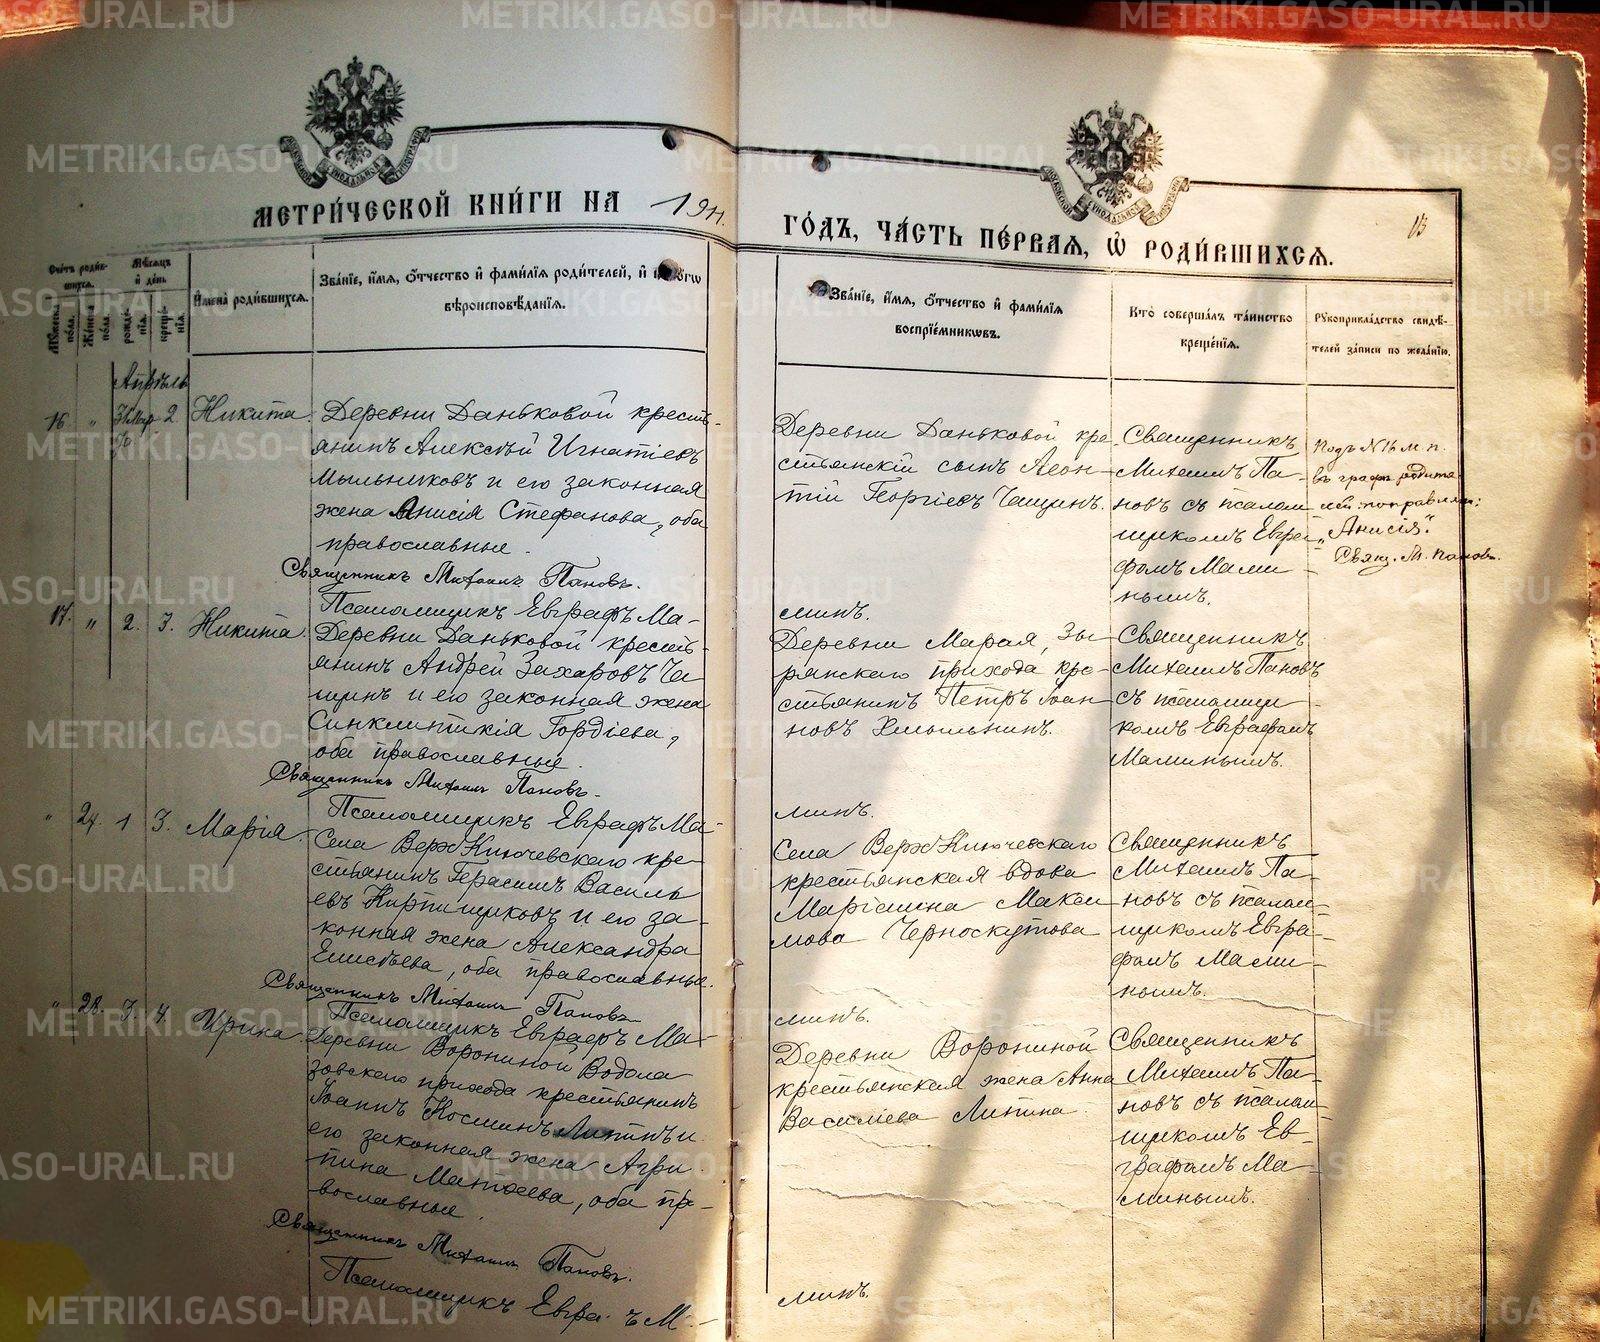 METRIKI.GASO-URAL.RU
МЕТРИ́ЧЕСКОЙ КНИ́ГИ НА 1911.
ГО́ДЪ, ЧА́СТЬ ПЕ́РВАЯ, Ѡ РОДИ́ВШИХСЯ.
13
Счетъ роди́вшихся.
Мужеска пола.
Женска пола.
Мѣсяцъ и день
рожденія.
крещенія.
Имена роди́вшихся.
Зва́ніе, и́мя, о́тчество и фами́лія роди́телей, и
вѣроисповѣ́данія.
Зва́ніе, и́мя, о́тчество и фами́лія
воспріе́мниковъ.
Кто̀ соверша́лъ та́инство
креще́нія.
Рукоприкла́дство свидѣ́-
телей за́писи по жела́нію.
Апрѣль
16. " 31 Мар 2 Никита.
Деревни Даньковой кресть-
янинъ Алексѣй Игнатіевъ
Мыльниковъ и его законная
жена Анисія Стефанова, оба
православные.
Священникъ Михаилъ Пановъ.
Псаломщикъ Евграфъ Ма-
минъ.
Деревни Даньковой кре-
стьянскій сынъ Леон-
тій Георгіевъ Чащинъ.
Священникъ
Михаилъ Па-
новъ съ псалом
щикомъ Евгра-
фомъ Мами-
нымъ.
Подъ N 16 м. п.
въ графѣ родите
лей: поправлен:
"Анисія".
Свящ. М. Пановъ.
17. " 2. 3. Никита.
Деревни Даньковой кресть-
янинъ Андрей Захаровъ Ча
щинъ и его законная жена
Синклитикія Гордіева,
оба православные.
Священникъ Михаилъ Пановъ.
Псаломщикъ Евграфъ Ма-
минъ.
Деревни Марая, Зы-
рянскаго прихода кре-
стьянинъ Петръ Іоан-
новъ Хмыльнинъ.
Священникъ
Михаилъ Пановъ
съ псаломщи-
комъ Евграфомъ
Маминымъ.
" 24. 1 3. Марія.
Села Верхъ Ключевскаго кре-
стьянинъ Герасимъ Василь
евъ Кирпищиковъ и его за-
конная жена Александра
Елисѣева, оба православные.
Священникъ Михаилъ Пановъ
Псаломщикъ Евграфъ Ма-
минъ.
Села Верхъ Ключевскаго
крестьянская вдова
Маріамна Макси-
мова Черноскутова
Священникъ
Михаилъ Па-
новъ съ псалом-
щикомъ Евгра-
фомъ Мами-
нымъ.
" 28. 3. 4. Ирина.
Деревни Ворониной Водола
зовскаго прихода крестьянинъ
Іоаннъ Косминъ Липинъ и
его законная жена Агри-
пина Матѳеева, оба пра-
вославные.
Священникъ Михаилъ Пановъ.
Псаломщикъ Евгра ъ М -
минъ.
Деревни Ворониной
крестьянская жена Анна
Василіева Липина
Священникъ
Михаилъ Па-
новъ съ псалом-
щикомъ Ев-
графомъ Ма-
минымъ.